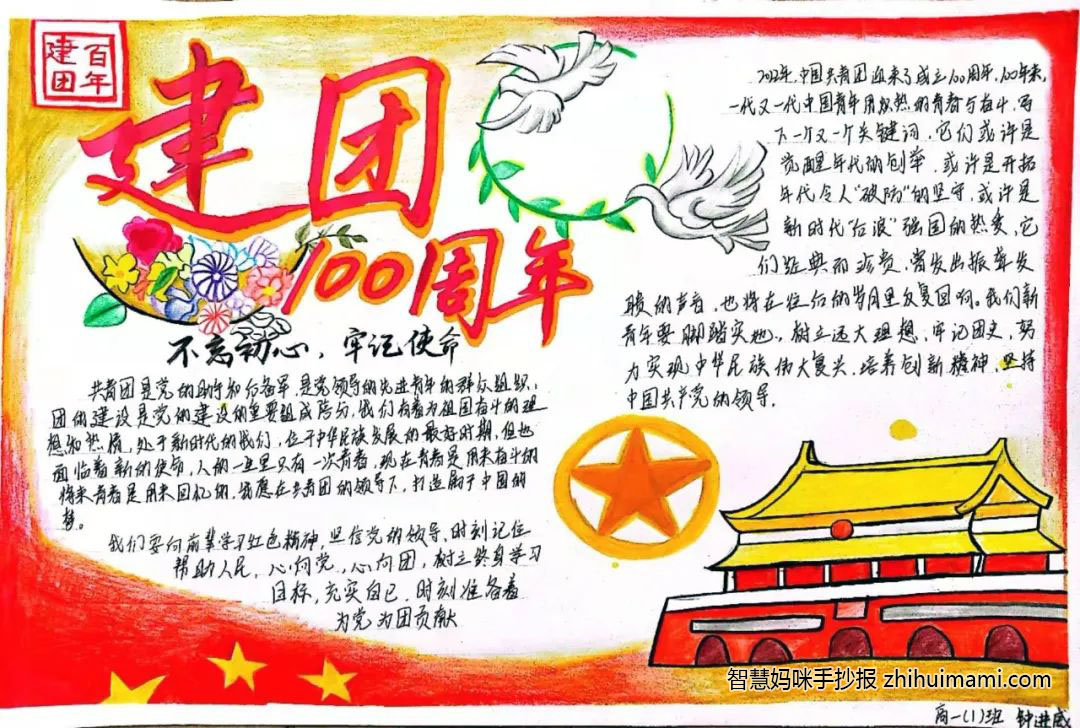 建百
团年
建团
100周年
不忘初心，牢记使命
共青团是党的助手和后备军，是党领导的先进青年的群众组织，
团的建设是党的建设的重要组成部分，我们有着为祖国奋斗的理
想和热情，处于新时代的我们，位于中华民族发展的最好时期，但也
面临着新的使命，人的一生里只有一次青春，现在青春是用来奋斗的
将来青春是用来回忆的，我愿在共青团的领导下，打造属于中国的
梦。
我们要向前辈学习红色精神，坚信党的领导，时刻记住
帮助人民，心向党，心向团，树立终身学习
目标，充实自己，时刻准备着
为党为团贡献
2022年，中国共青团迎来了成立100周年，100年来，
一代又一代中国青年用炽热的青春与奋斗，写
下一个又一个关键词，它们或许是
觉醒年代的创举，或许是开拓
年代令人"破防"的坚守，或许是
新时代"后浪"强国的热爱，它
们经典而珍贵，曾发出振聋发
聩的声音，也将在往后的岁月里反复回响。我们新
青年要脚踏实地，树立远大理想，牢记团史，努
力实现中华民族伟大复兴，培养创新精神，坚持
中国共产党的领导。
智慧妈咪手抄报 zhihuimami.com
高一(1)班 钟进威